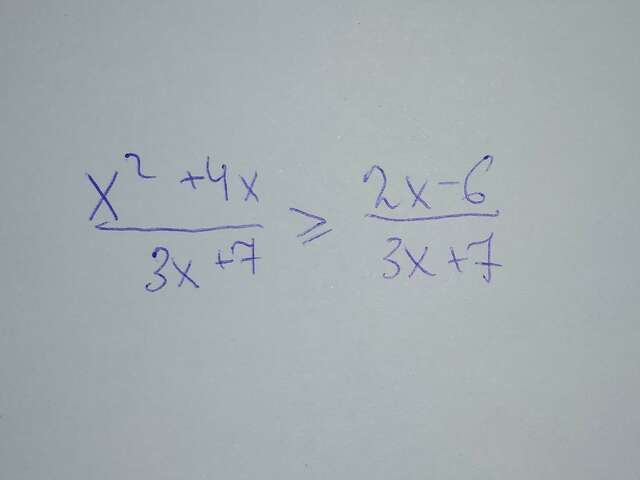 x² +4x / 3x +7 ≥ 2x -6 / 3x +7